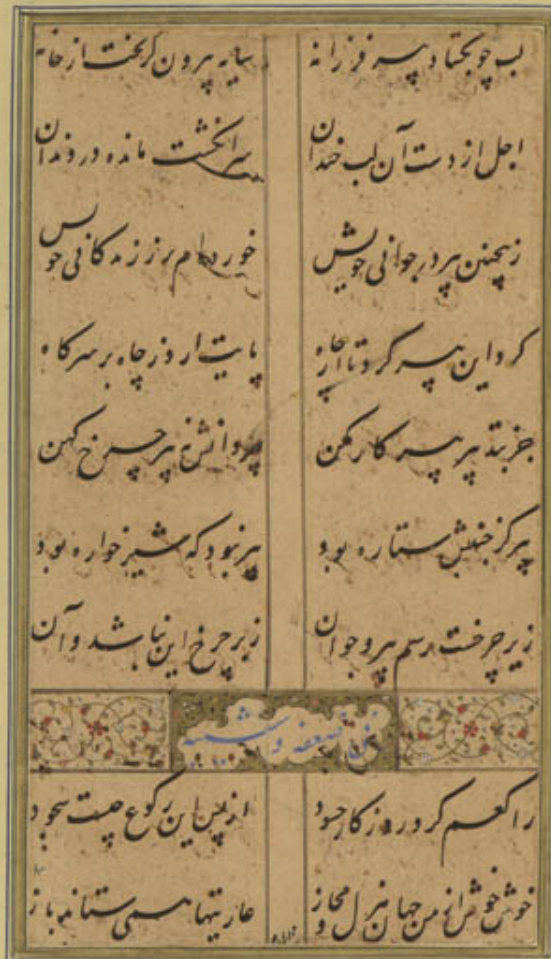 لب چو بکشاد پیر فرزانه سایه بیرون کریخت از خانه
اجل از دست آن لب خندان سر انکشت مانده در دندان
زیچنین پیر در جوانی خویش خورده ام بر ز زندکانی خویش
کرد این پیر کرد تا از چاه پایت آرد ز چاه بر سر کاه
جز بتدبیر پیر کار مکن پیر دانش نه پیر چرخ کهن
پیر کز جنبش ستاره بود پیر نبود که شیر خواره بود
زیر چرخست رسم پیر و جوان زبر چرخ این نباشد و آن
فی ضعفه و شیبه
راکعم کرد روزکار حسود از پس این رکوع چیست سجود
خوش خوش از من جهان هزل و مجاز عاریتها همی ستاند باز